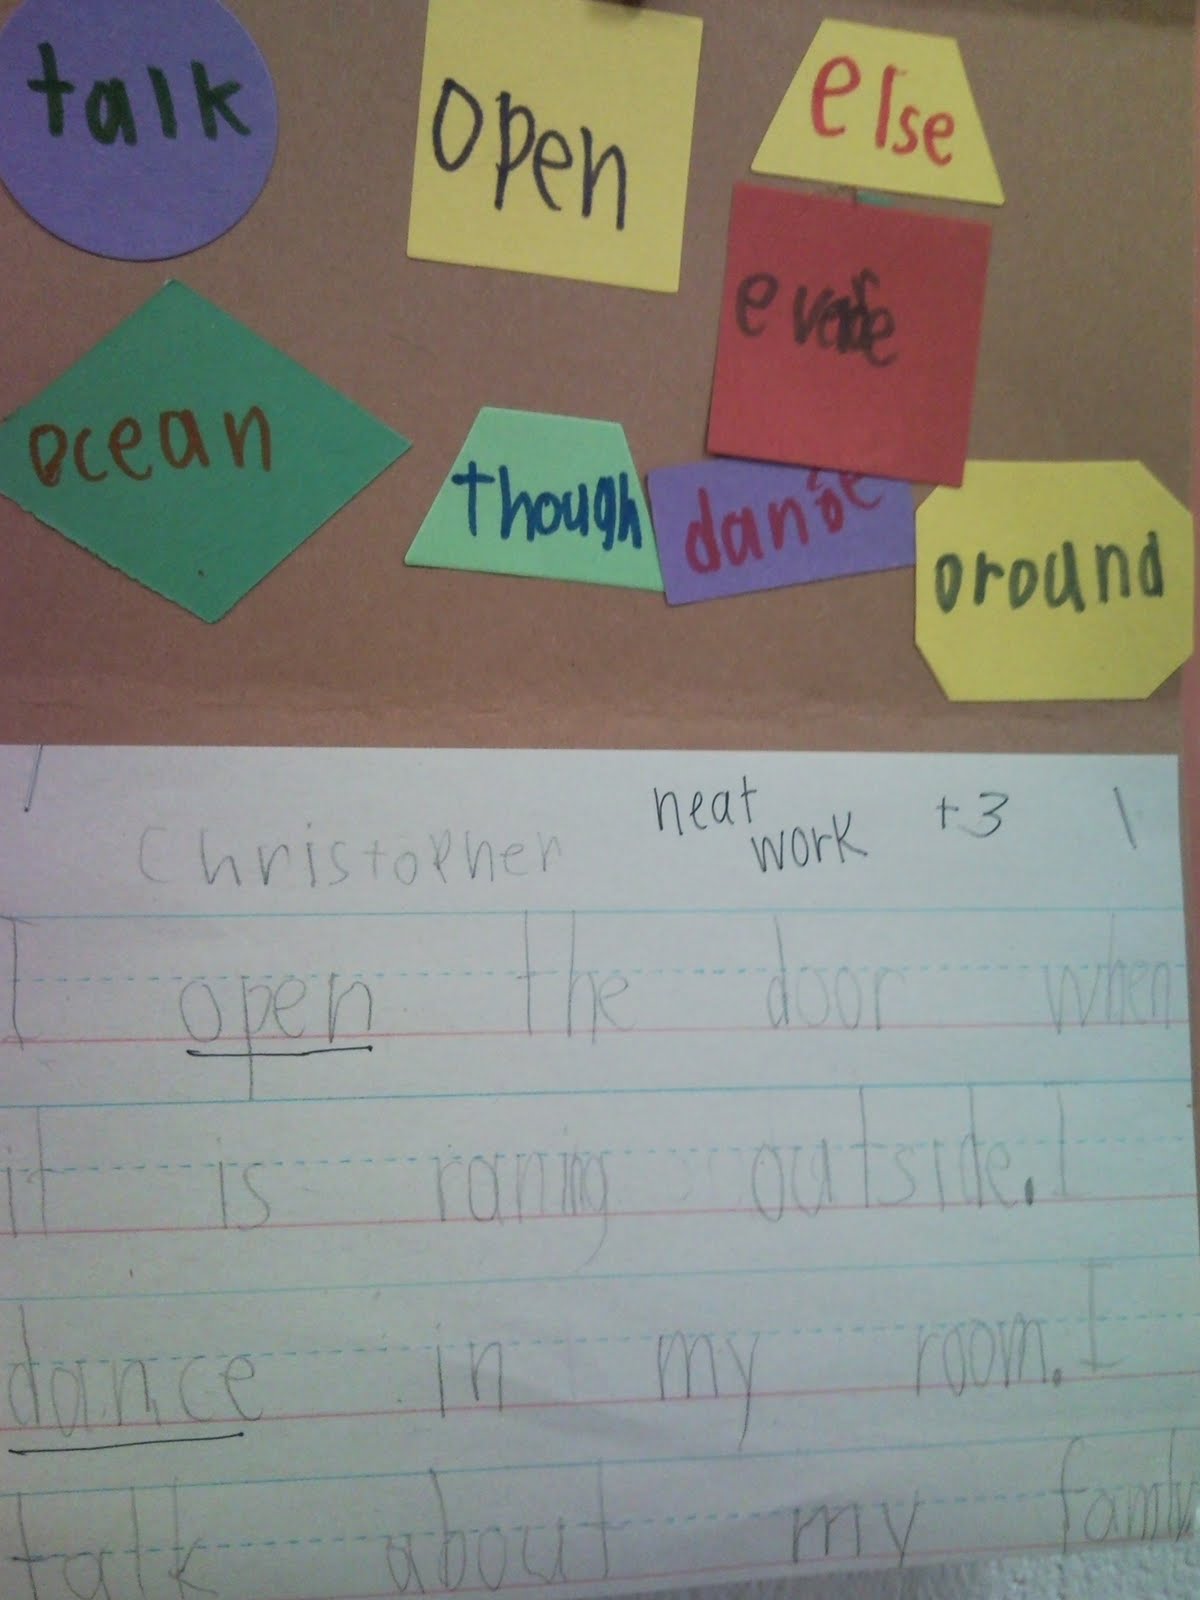 talk
open
else
ocean
though
dance
oround
Christopher
neat
work
+3
I open the door when
it is raning outside. I
dance in my room. I
talk about my family